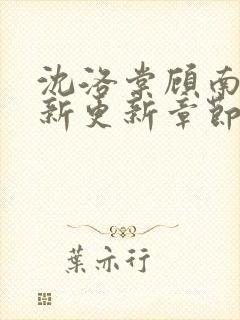 沈洛棠顾南
新更新章節
葉亦行